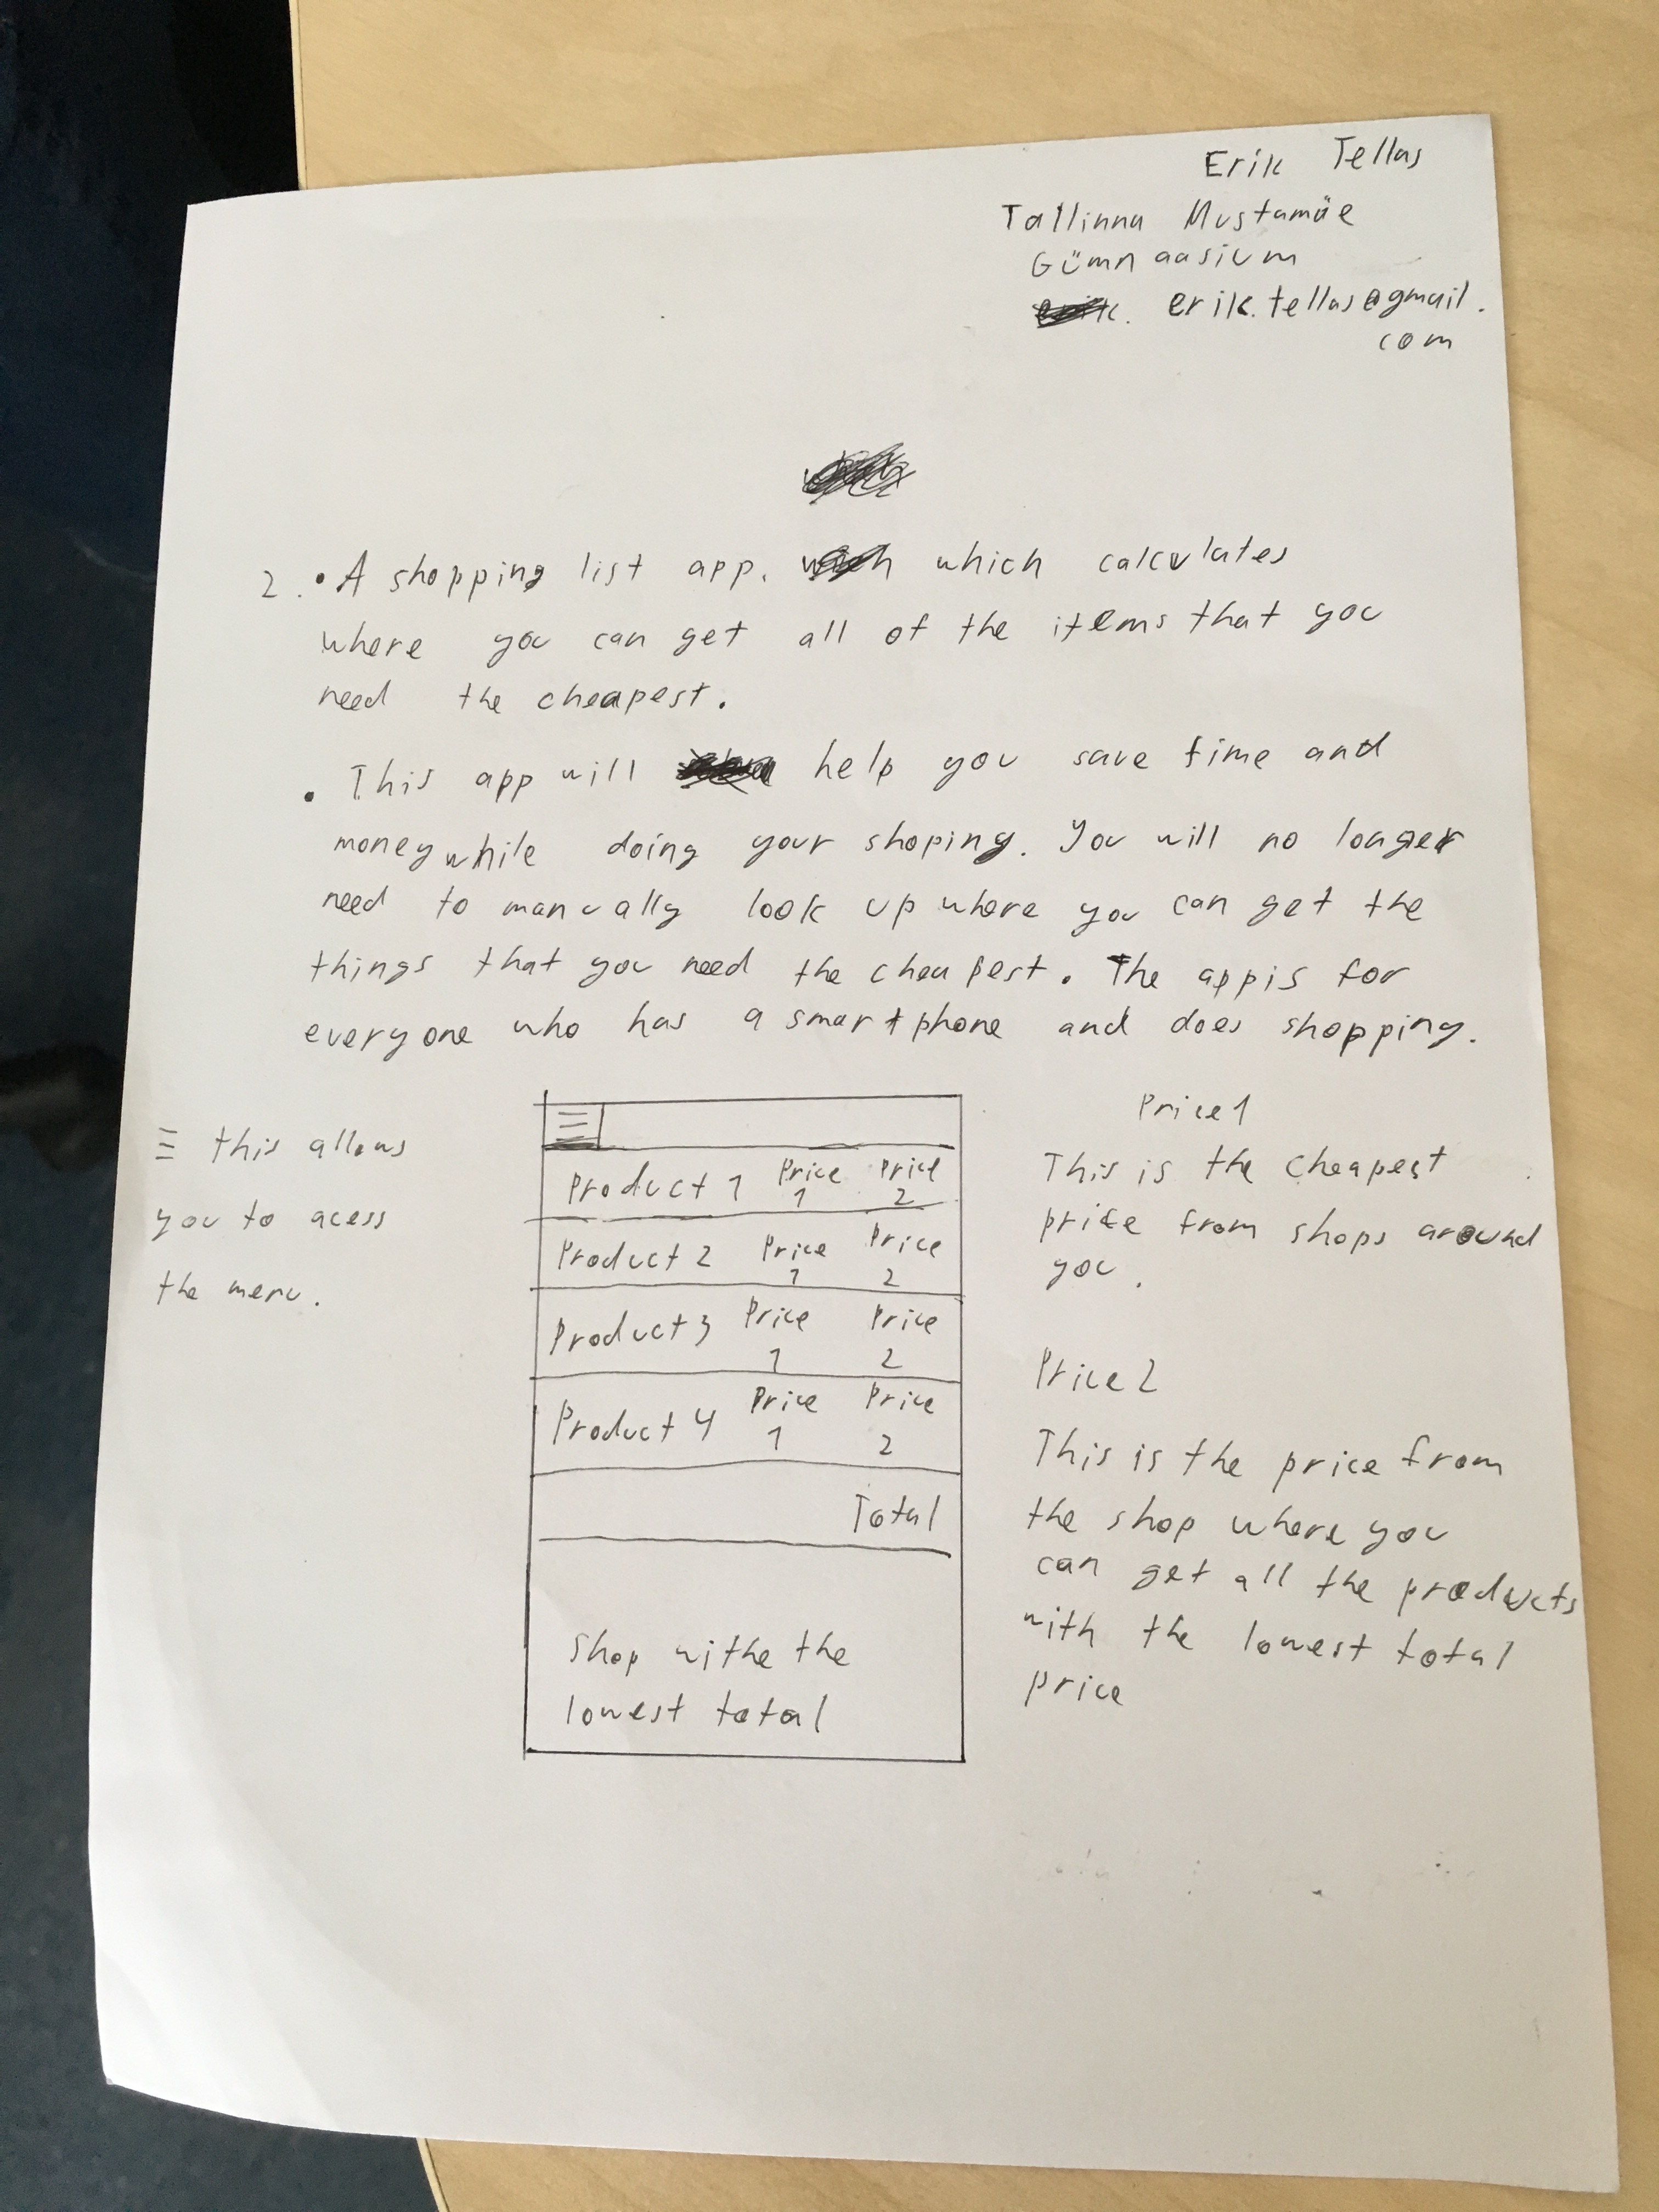 Erik Tellas
Tallinna Mustamäe
Gümnaasium
erik.tellas@gmail.
com
2. • A shopping list app. which calculates
where you can get all of the items that you
need the cheapest.
• This app will help you save time and
money while doing your shoping. You will no longer
need to manually look up where you can get the
things that you need the cheapest. The app is for
everyone who has a smartphone and does shopping.
≡ this allows
you to acess
the menu.
≡
Product 1 Price 1 Price 2
Product 2 Price 1 Price 2
Product 3 Price 1 Price 2
Product 4 Price 1 Price 2
Total
Shop withe the
lowest total
Price 1
This is the cheapest
price from shops around
you.
Price 2
This is the price from
the shop where you
can get all the products
with the lowest total
price